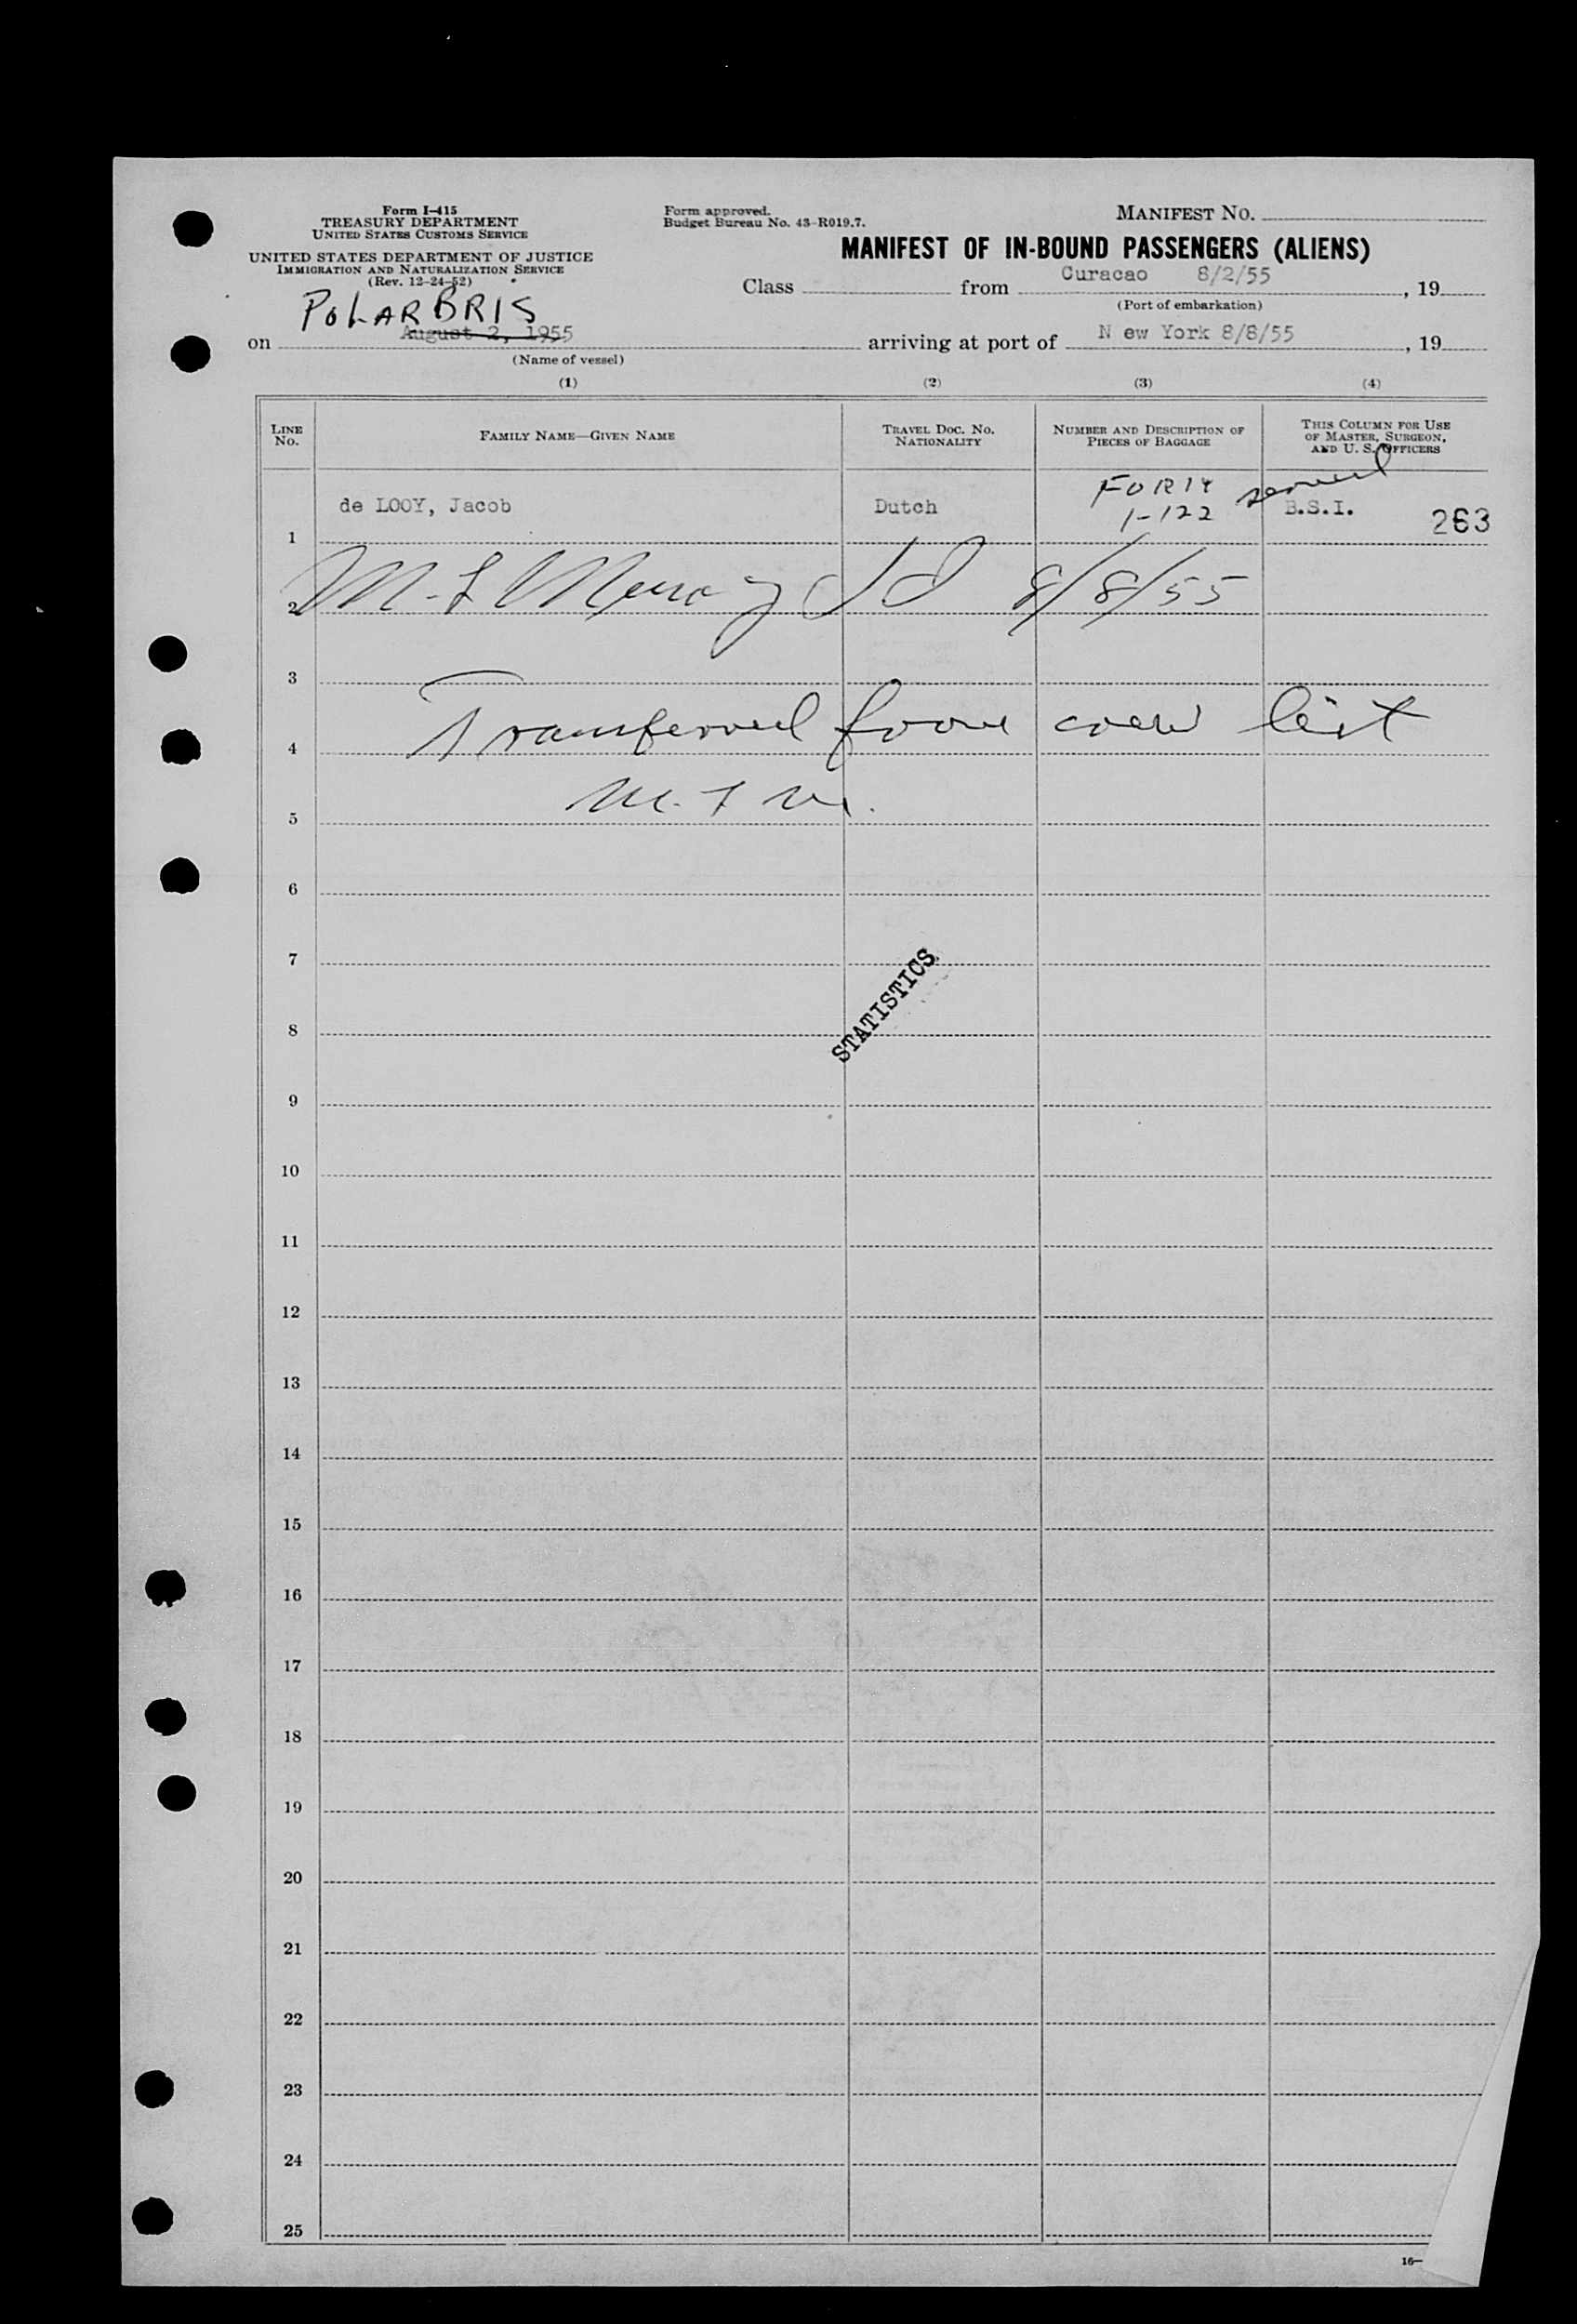 Form I-415
TREASURY DEPARTMENT
UNITED STATES CUSTOMS SERVICE
UNITED STATES DEPARTMENT OF JUSTICE
IMMIGRATION AND NATURALIZATION SERVICE
(Rev. 12-24-52)
Form approved.
Budget Bureau No. 43-R019.7.
MANIFEST No.
MANIFEST OF IN-BOUND PASSENGERS (ALIENS)
Class from Curacao 8/2/55, 19
(Port of embarkation)
POLARBRIS
on August 2, 1955 arriving at port of N ew York 8/8/55, 19
(Name of vessel)
(1) (2) (3) (4)
LINE No. FAMILY NAME—GIVEN NAME TRAVEL DOC. NO. NATIONALITY NUMBER AND DESCRIPTION OF PIECES OF BAGGAGE THIS COLUMN FOR USE OF MASTER, SURGEON, AND U. S. OFFICERS
1 de LOOY, Jacob Dutch I-122 served B.S.I. 263
2 8/8/55
3
4 Transferred from crew list
5
6
7
STATISTICS
8
9
10
11
12
13
14
15
16
17
18
19
20
21
22
23
24
25
16—